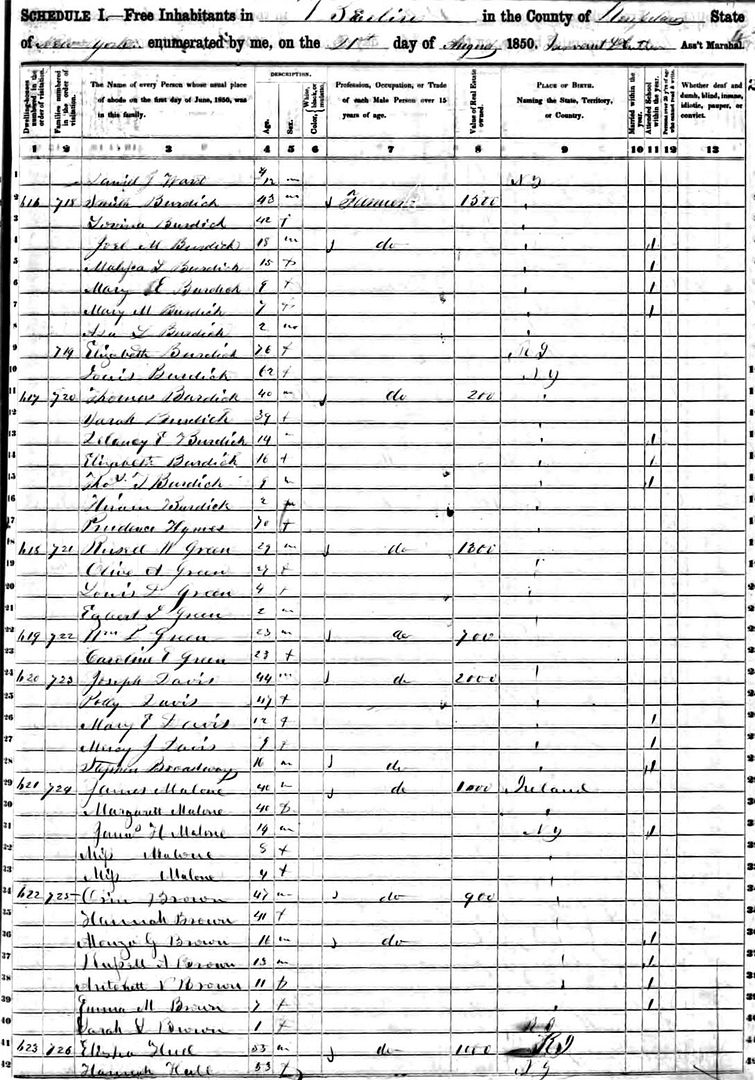 SCHEDULE I.—Free Inhabitants in Berlin in the County of Rensselaer State
of New York enumerated by me, on the 21st day of August 1850. Ass't Marshal
Dwelling-houses numbered in the order of visitation.
Families numbered in the order of visitation.
The Name of every Person whose usual place of abode on the first day of June, 1850, was in this family.
DESCRIPTION.
Age.
Sex.
Color, White, black, or mulatto.
Profession, Occupation, or Trade of each Male Person over 15 years of age.
Value of Real Estate owned.
PLACE OF BIRTH. Naming the State, Territory, or Country.
Married within the year.
Attended School within the year.
Persons over 20 y'rs of age who cannot read & write.
Whether deaf and dumb, blind, insane, idiotic, pauper, or convict.
1 2 3 4 5 6 7 8 9 10 11 12 13
1 David J 4/12 m N Y
2 616 718 Smith Burdick 43 m Farmer 1500
3 Lovina Burdick 42 f
4 Joel M Burdick 18 m do 1
5 L Burdick 15 f 1
6 Mary E Burdick 9 f 1
7 Mary M Burdick 7 f 1
8 Asa L Burdick 2 m
9 719 Elizabeth Burdick 76 f R I
10 Louis Burdick 62 f N Y
11 617 720 Thomas Burdick 40 m do 200
12 Sarah Burdick 39 f
13 Burdick 14 1
14 Elizabeth Burdick 16 f 1
15 Thos T Burdick 9 1
16 Hiram Burdick 2
17 Prudence Hymes 70 f
18 618 721 Russel W Green 29 m do 1300
19 Olive A Green 27 f
20 Louis D Green 4 f
21 Egbert L Green 2 m
22 619 722 Wm L Green 23 m do 700
23 Caroline E Green 23 f
24 620 723 Joseph Davis 44 m do 2000
25 Polly Davis 47 f
26 Mary E Davis 12 f 1
27 Mercy J Davis 9 f 1
28 Stephen Broadway 16 m do 1
29 621 724 James Malone 40 m do 1000 Ireland
30 Margarett Malone 40 f
31 James H Malone 14 m N Y 1
32 Miss Malone 5 f
33 Miss Malone 4 f
34 622 725 Orin Brown 47 m do 900
35 Hannah Brown 40 f
36 Alonzo G Brown 16 m do 1
37 A Brown 13 m 1
38 V Brown 11 f 1
39 Emma M Brown 7 f 1
40 Sarah V Brown 1 f
41 623 726 Elisha Hull 55 m do 1000 R I
42 Hannah Hull 53 f N Y